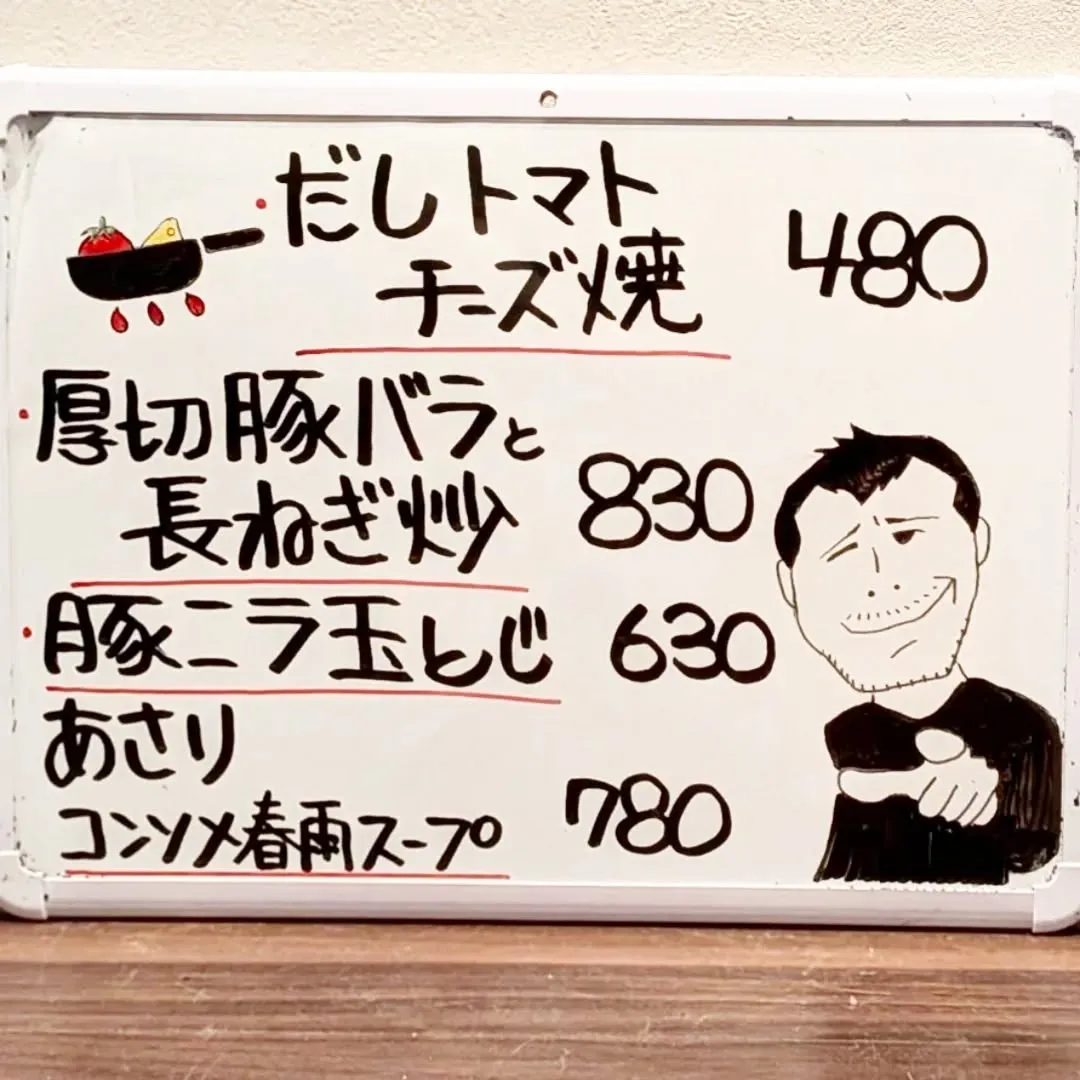 だしトマト
チーズ焼 480
厚切豚バラと
長ねぎ炒 830
豚ニラ玉とじ 630
あさり
コンソメ春雨スープ 780